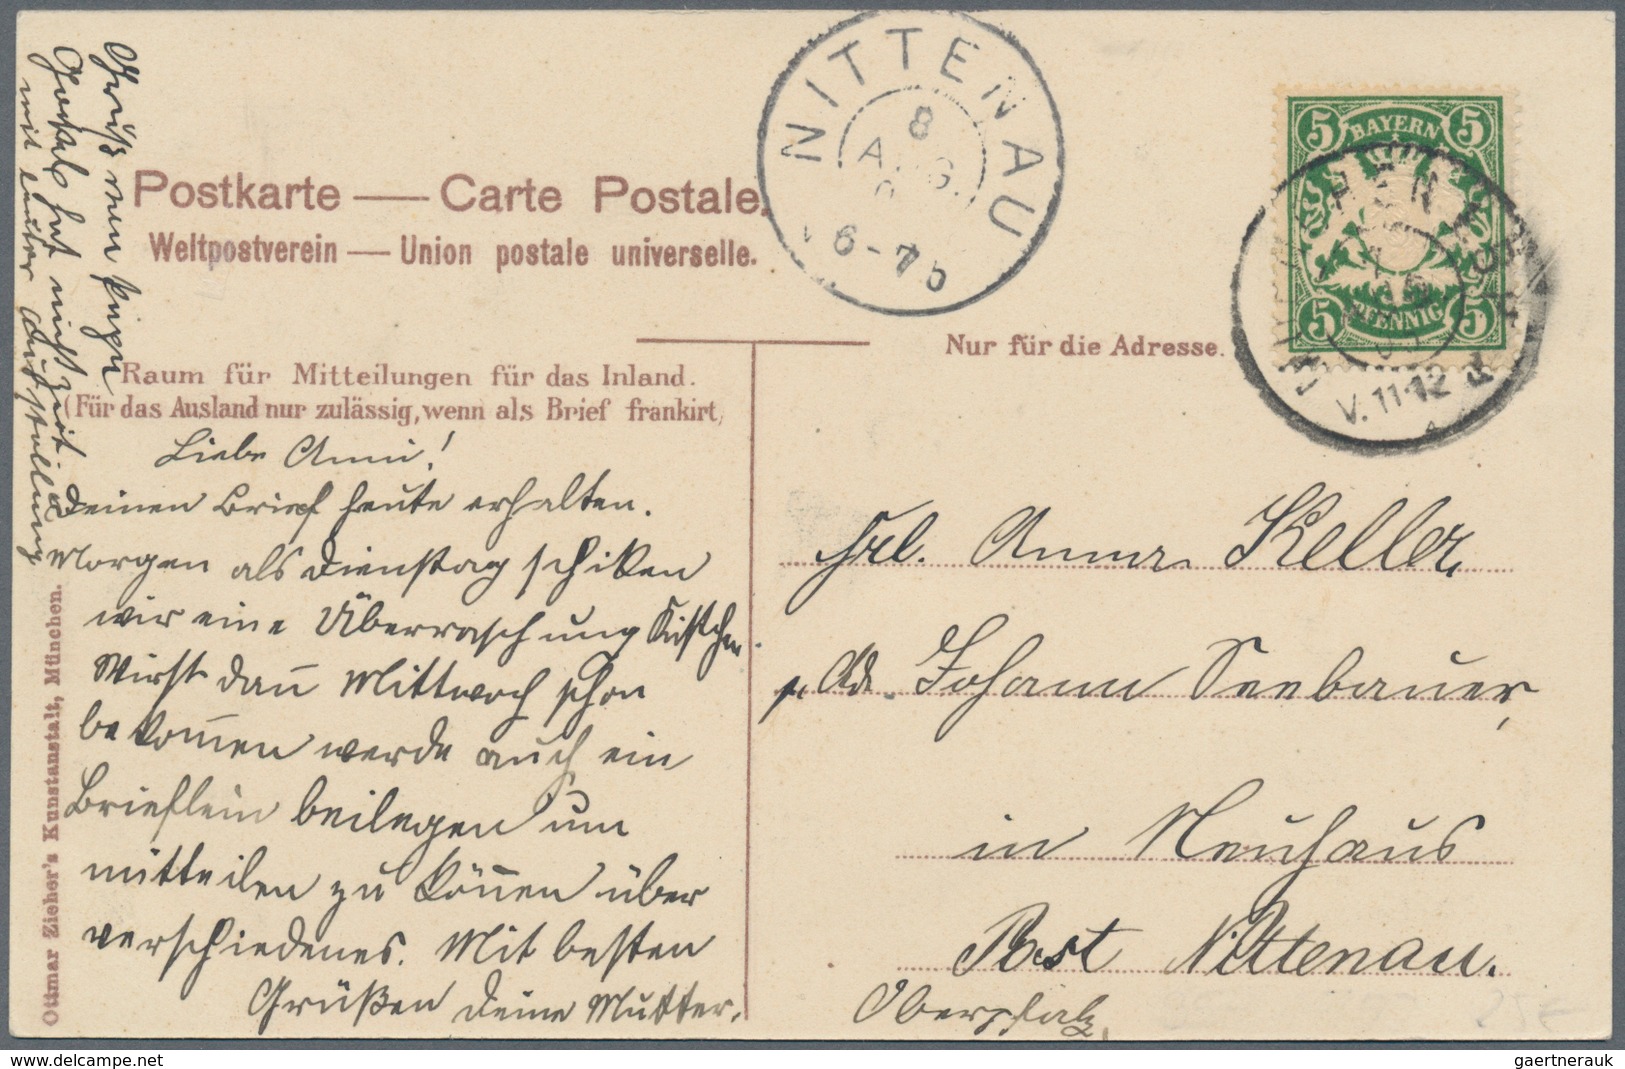 Postkarte — Carte Postale.
Weltpostverein — Union postale universelle.
NITTENAU
8
AUG
6-7
BAYERN
5 5
5 5
PFENNIG
V. 11-12
Nur für die Adresse.
Raum für Mitteilungen für das Inland.
(Für das Ausland nur zulässig, wenn als Brief frankirt,
Liebe Anni!
Deinen Brief heute erhalten.
Morgen als Dienstag schiken
wir eine Überraschung Kistchen
Wirst dan̄ Mittwoch schon
bekom̄en werde auch ein
Brieflein beilegen um
mitteilen zu kön̄en über
verschiedenes. Mit besten
Grüßen Deine Mutter.
hat nicht Zeit
mit lauter Ausstellung
Frl. Anna Keller
Johann Seebauer,
in Neuhaus
Post Nittenau.
Oberpfalz,
Ottmar Zieher's Kunstanstalt, München.
www.delcampe.net
gaertnerauk